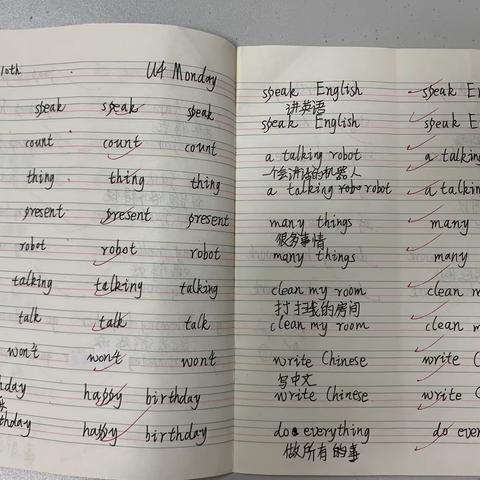 10th U4 Monday
speak speak speak
count count count
thing thing thing
present present present
robot robot robot
talking talking talking
talk talk talk
won't won't won't
happy birthday
happy birthday
speak English speak
讲英语
speak English speak
a talking robot a talking
一个会讲话的机器人
a talking robo robot a talking
many things many
很多事情
many things many
clean my room clean m
打扫我的房间
clean my room clean m
write Chinese write C
写中文
write Chinese write C
do everything do
做所有的事